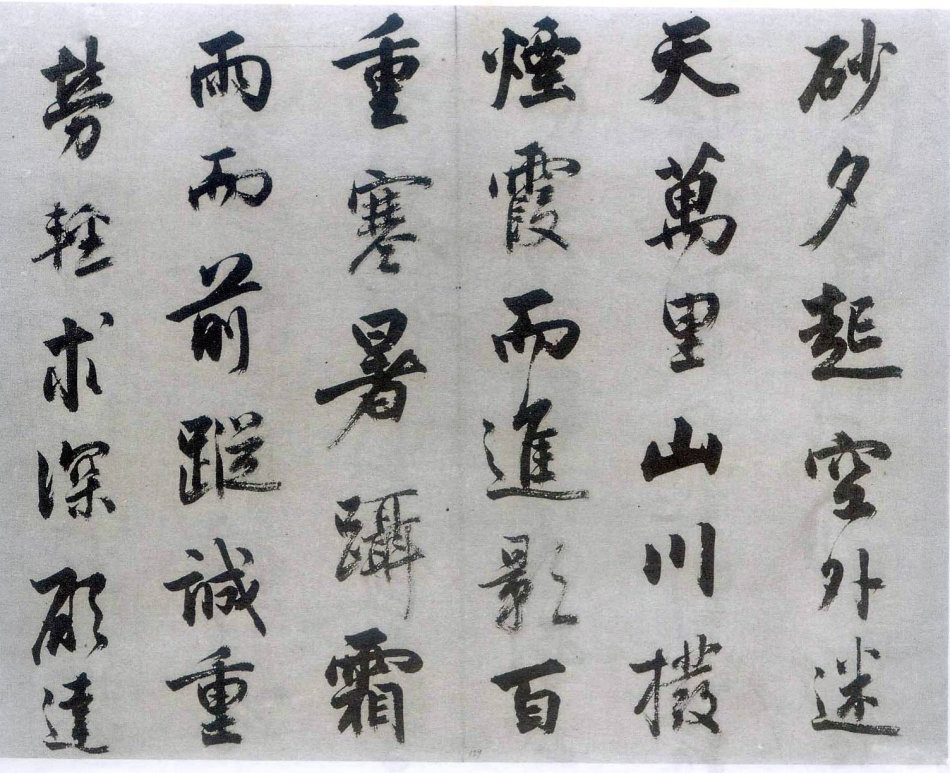 砂夕起空外迷
天萬里山川撥
煙霞而進影百
重寒暑躡霜
雨而前蹤誠重
勞輕求深願達